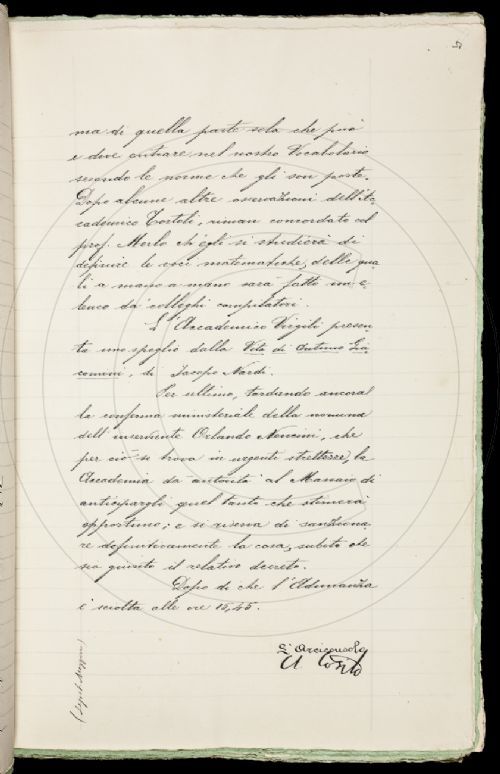 ma di quella parte sola che può
e deve entrare nel nostro Vocabolario
secondo le norme che gli son poste.
Dopo alcune altre osservazioni dell'Ac-
cademico Tortoli, riman concordato col
prof. Merlo ch'egli si studierà di
definire le voci matematiche, delle qua-
li a mano a mano sarà fatto un e-
lenco da' colleghi compilatori.
L'Accademico Virgili presen-
ta uno spoglio dalla Vita di Antonio Gia-
comini, di Jacopo Nardi.
Per ultimo, tardando ancora
la conferma ministeriale della nomina
dell'inserviente Orlando Nencini, che
per ciò si trova in urgenti strettezze, la
Accademia dà autorità al Massaio di
anticipargli quel tanto che stimerà
opportuno; e si riserva di sanziona-
re definitivamente la cosa, subito che
sia giunto il relativo decreto.
Dopo di che l'Adunanza
è sciolta alle ore 15,45.
L'Arciconsolo